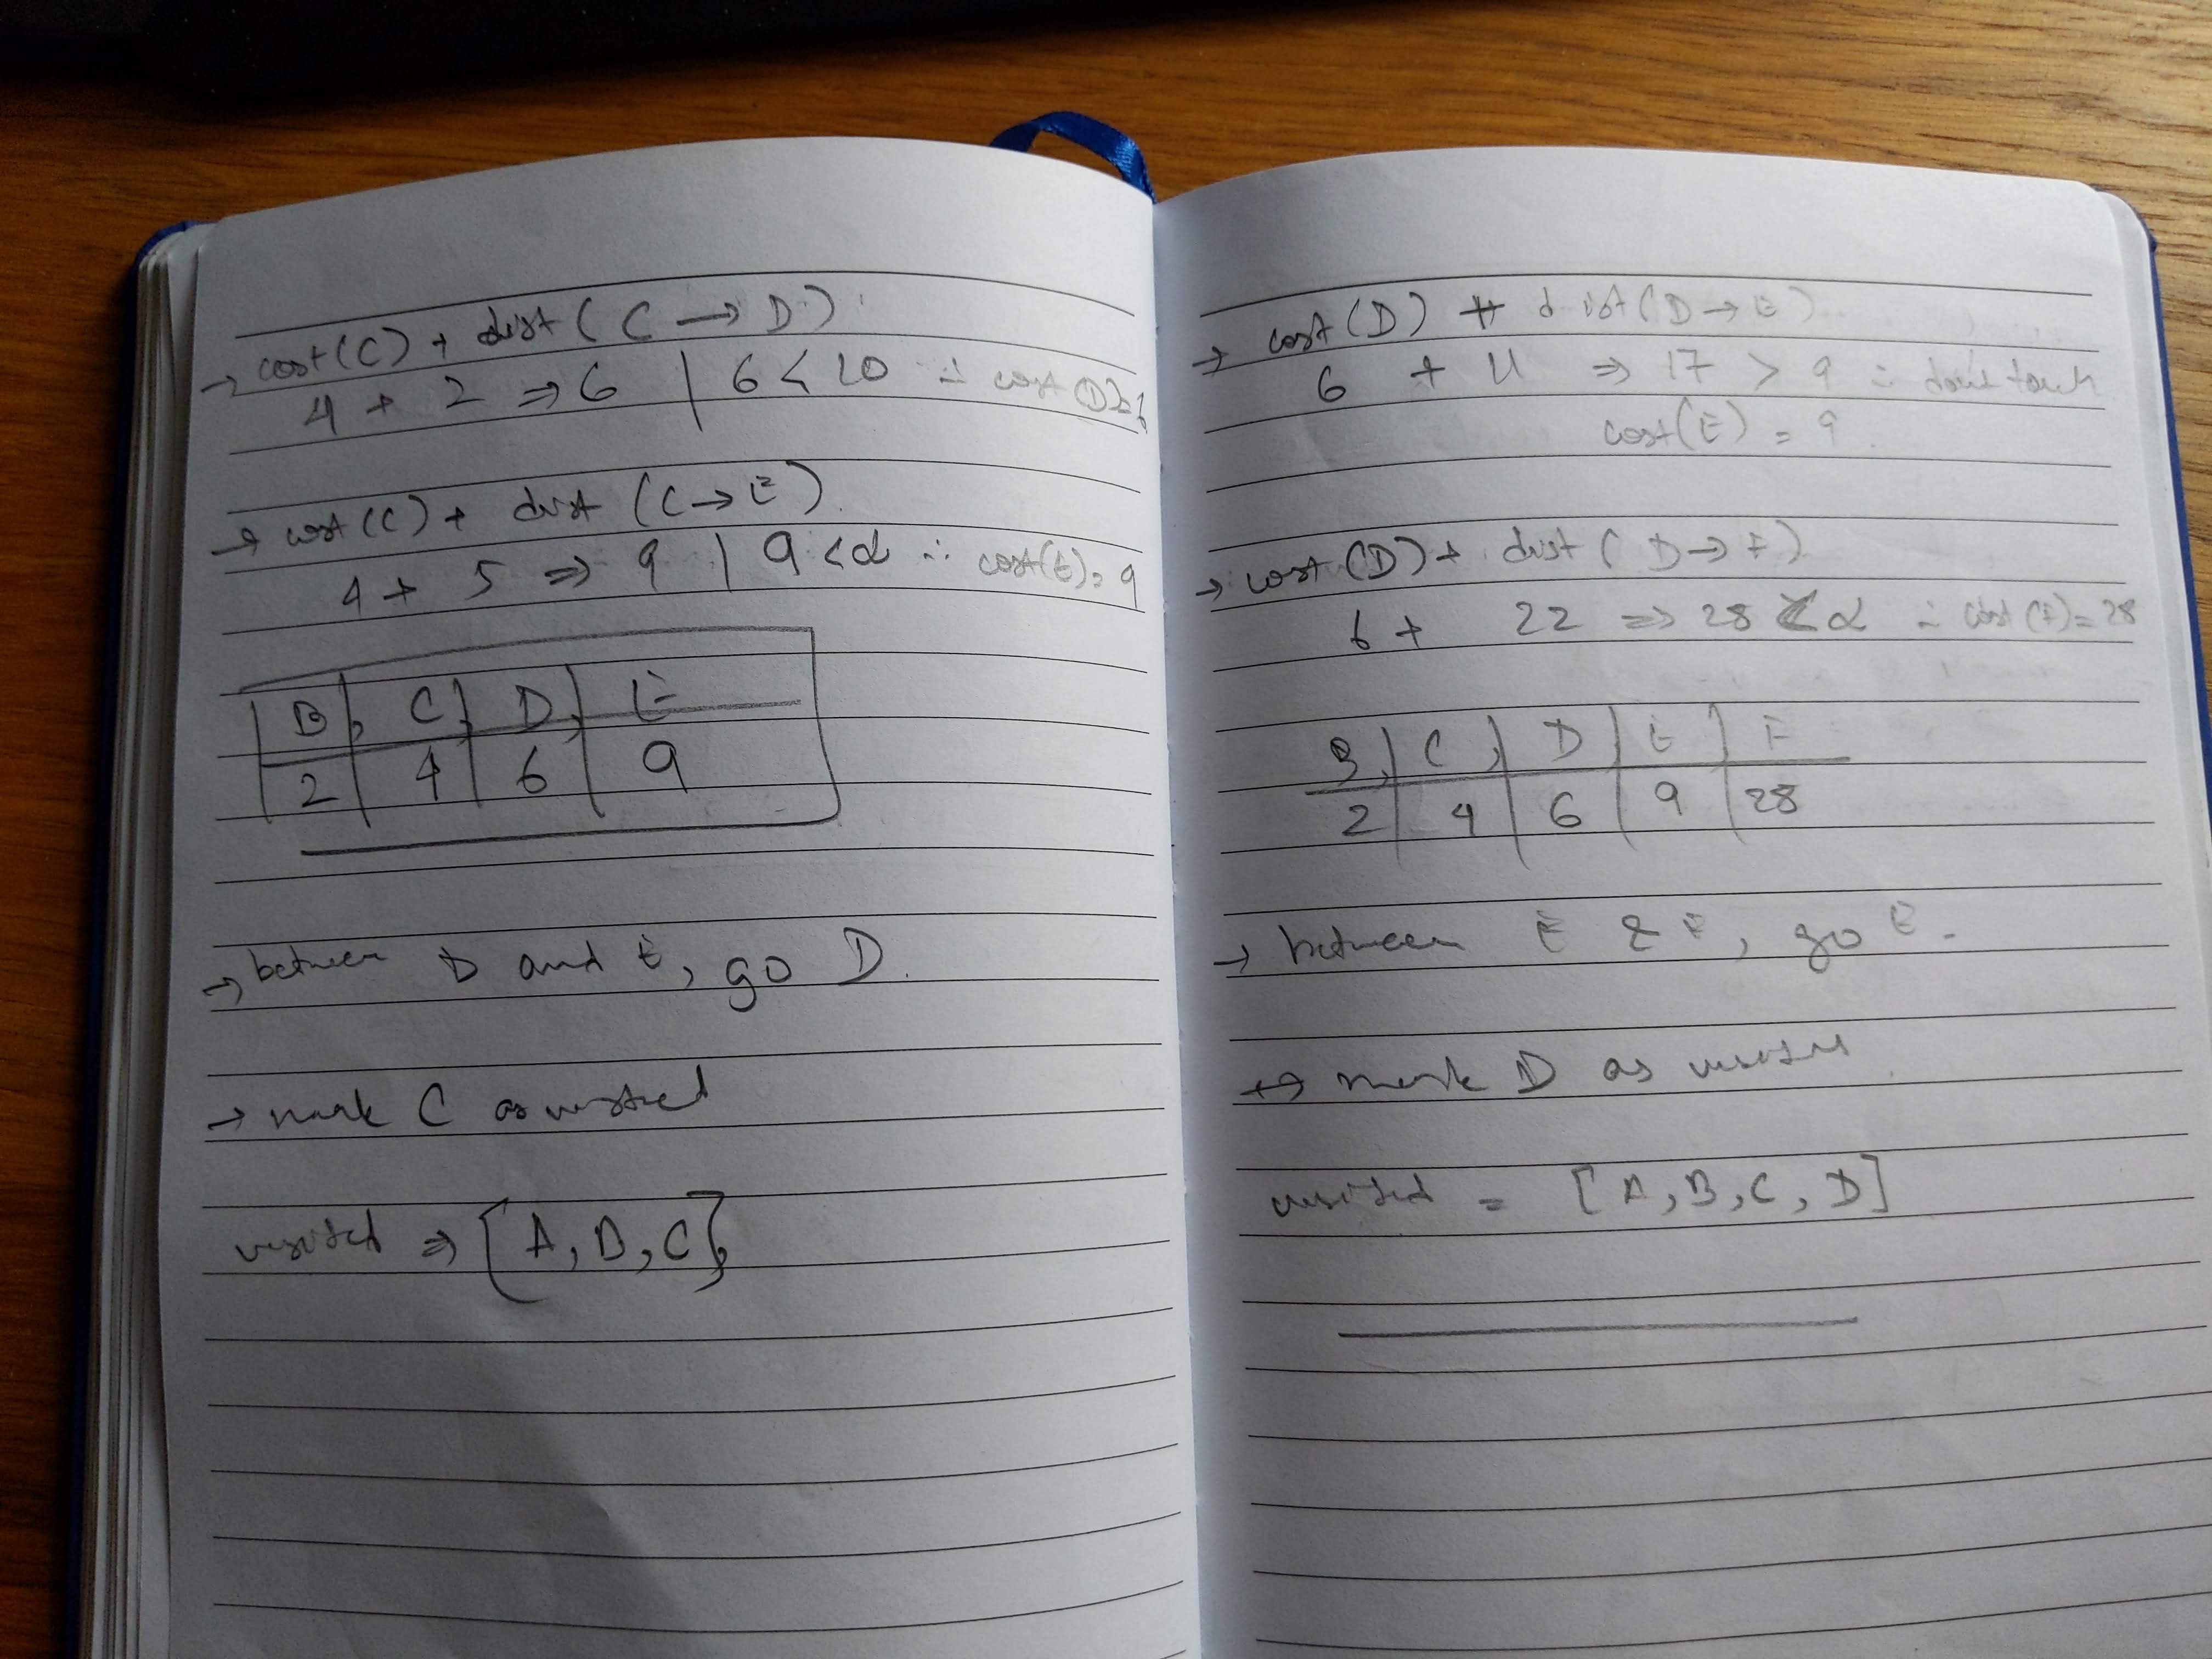 → cost(C) + dist(C → D)
4 + 2 ⇒ 6 | 6 < 10 ∴ cost(D)=6
→ cost(C) + dist (C → E)
4 + 5 ⇒ 9 | 9 < α ∴ cost(E) = 9
B, C, D, E
2 4 6 9
→ between D and E, go D.
→ mark C as visited
visited ⇒ [A, B, C]
→ cost(D) + dist(D → E)
6 + 11 ⇒ 17 > 9 ∴ dont touch
cost(E) = 9
→ cost(D) + dist(D → F)
6 + 22 ⇒ 28 < α ∴ cost(F) = 28
B, C, D, E, F
2 4 6 9 28
→ between E & F, go E.
→ mark D as visited
visited = [A, B, C, D]